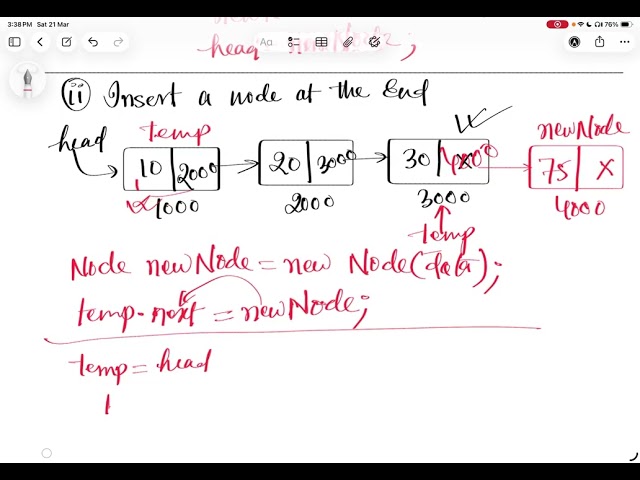 3:38 PM Sat 21 Mar
76%
Aa
head = newNode;
(ii) Insert a node at the End
head temp newNode
10 2000 20 3000 30 X 4000 75 X
1000 2000 3000 4000
temp
Node newNode = new Node(data);
temp.next = newNode;
temp = head